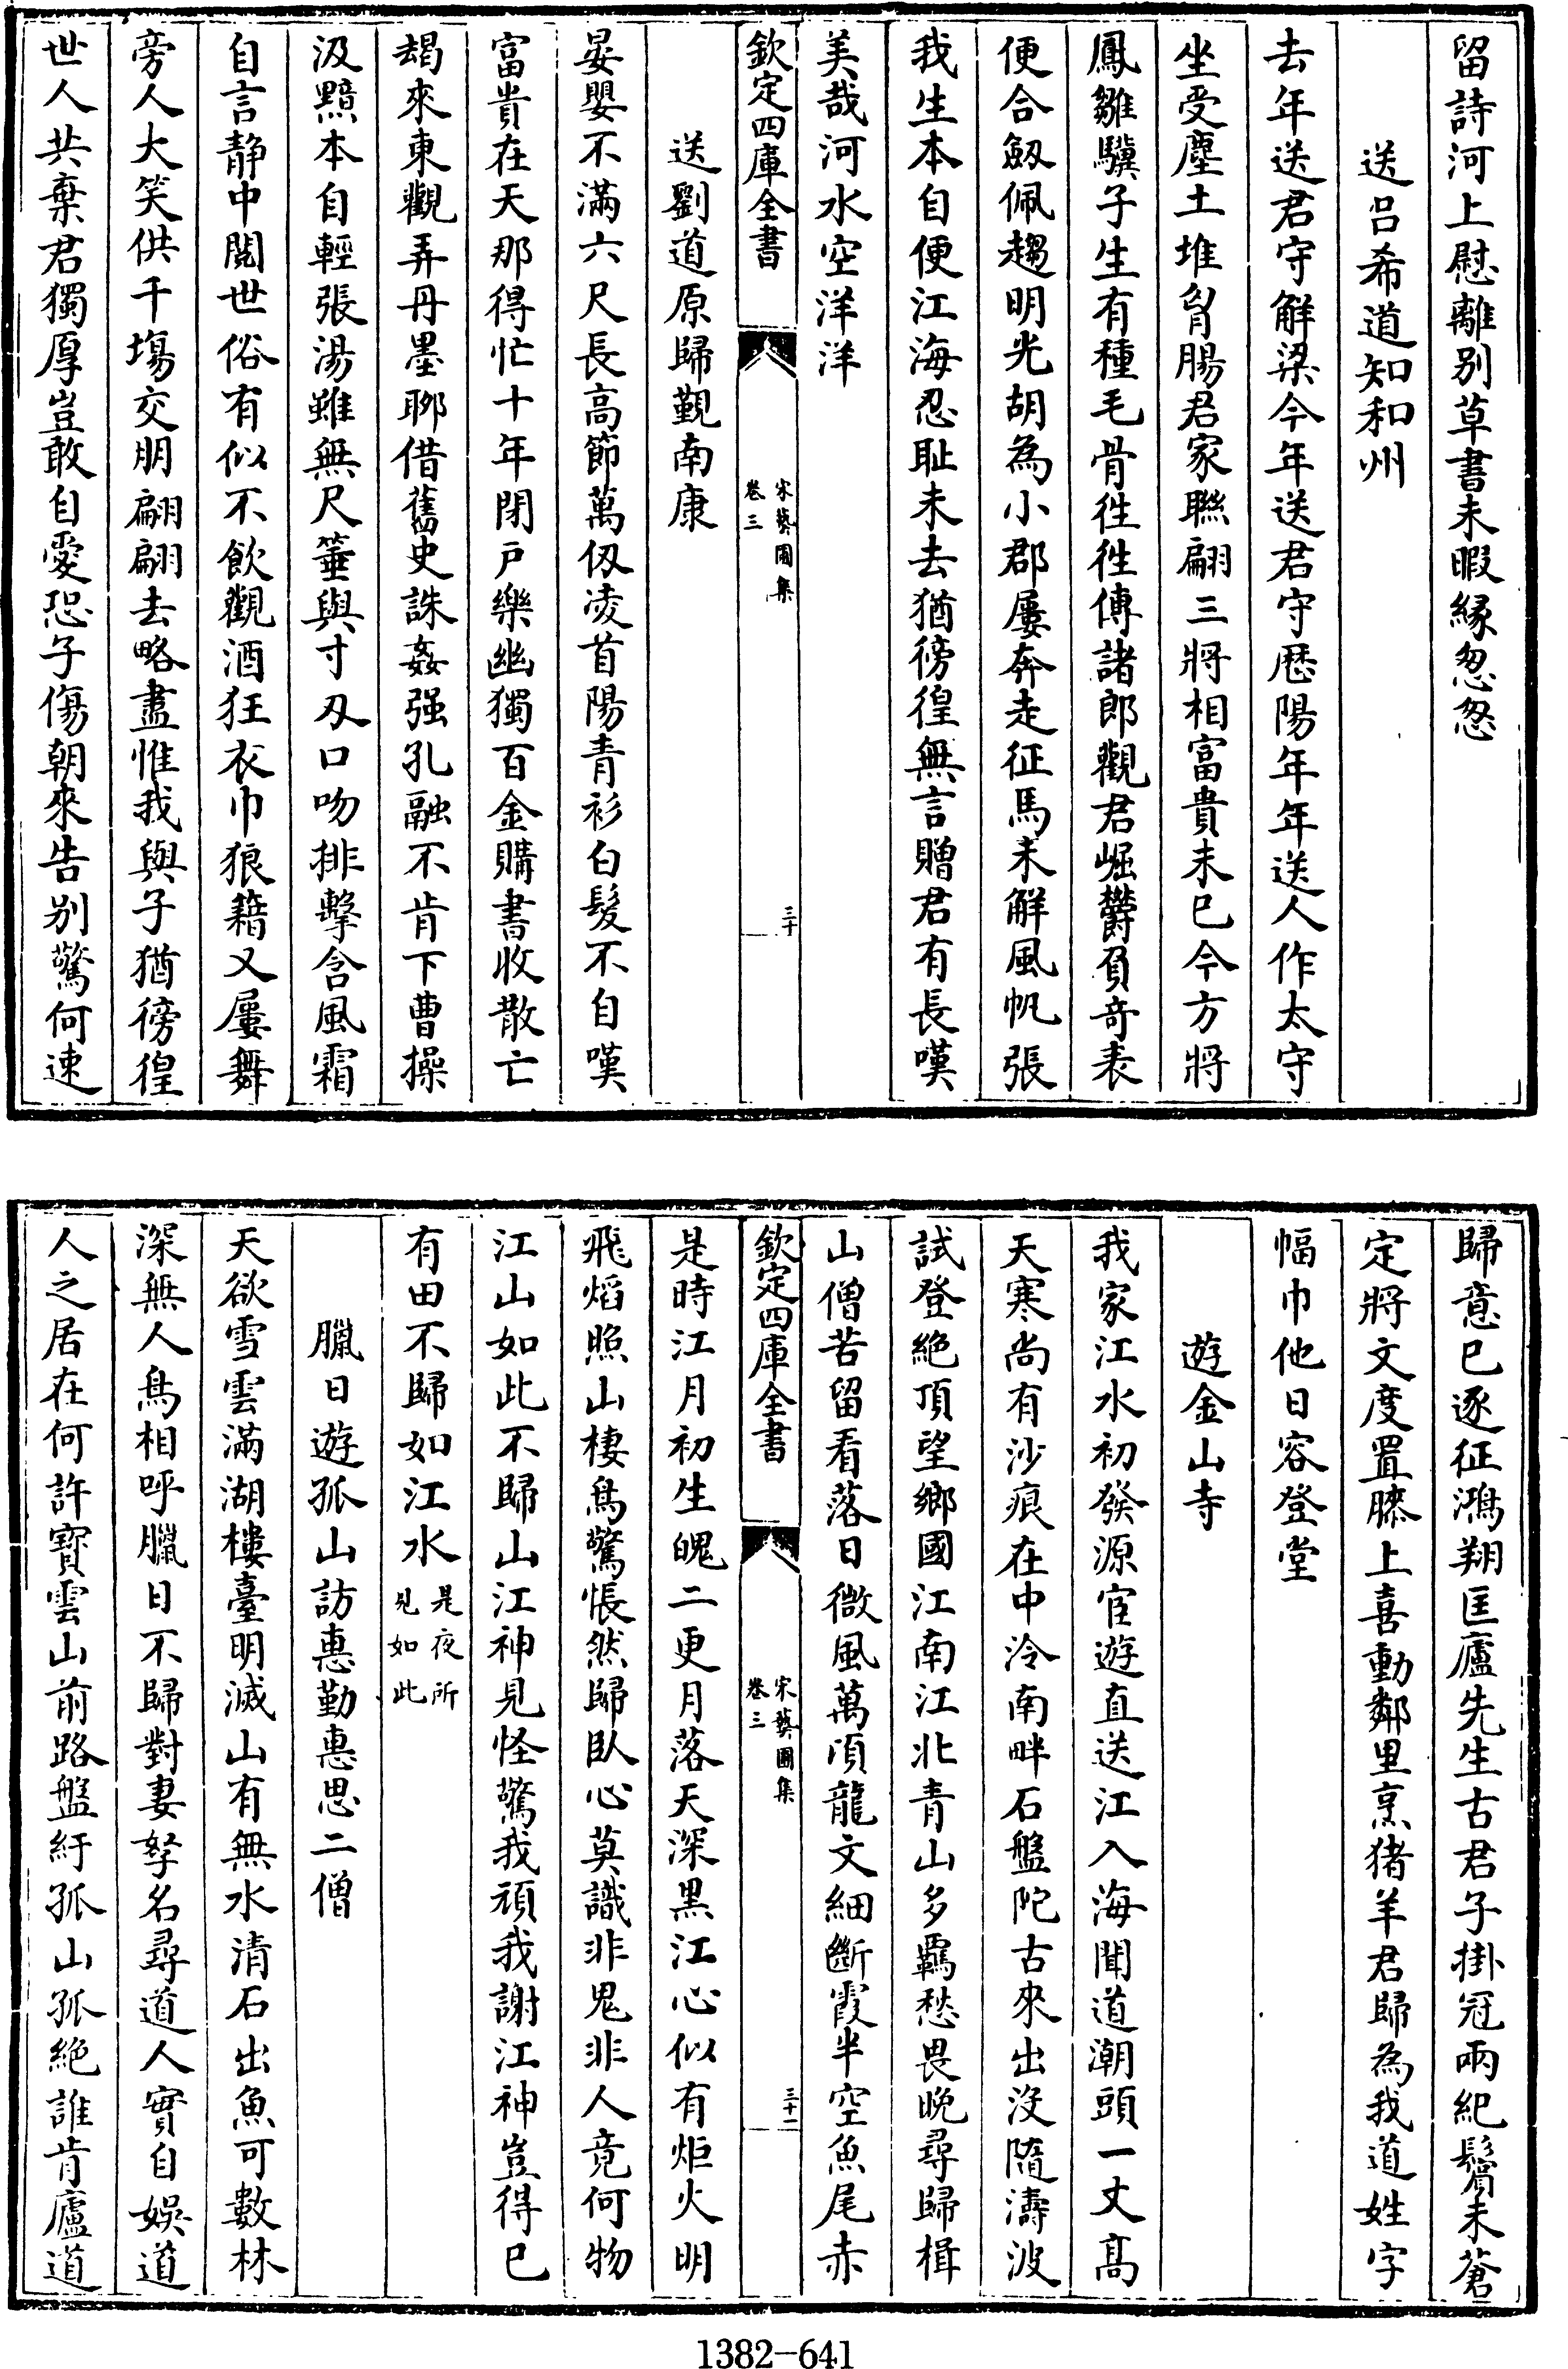 留詩河上慰離别草書未暇縁怱怱
送吕希道知和州
去年送君守解梁今年送君守歴陽年年送人作太守
坐受塵土堆胷腸君家聯翩三將相富貴未已今方將
鳳雛驥子生有種毛骨徃徃傅諸郎觀君崛鬱負奇表
便合劔佩趨明光胡為小郡屢奔走征馬未解風帆張
我生本自便江海忍耻未去猶徬徨無言贈君有長嘆
美哉河水空洋洋
欽定四庫全書
宋藝圃集
卷三
三十
送劉道原歸覲南康
晏嬰不滿六尺長高節萬仭凌首陽青衫白髮不自嘆
富貴在天那得忙十年閉戸樂幽獨百金購書收散亡
朅來東觀弄丹墨聊借舊史誅姦强孔融不肯下曹操
汲黯本自輕張湯雖無尺箠與寸刄口吻排擊含風霜
自言静中閲世俗有似不飲觀酒狂衣巾狼籍又屢舞
旁人大笑供千塲交朋翩翩去略盡惟我與子猶徬徨
世人共棄君獨厚豈敢自愛恐子傷朝來告别驚何速
歸意已逐征鴻翔匡廬先生古君子掛冠兩紀鬢未蒼
定將文度置膝上喜動鄰里烹猪羊君歸為我道姓字
幅巾他日容登堂
遊金山寺
我家江水初發源宦遊直送江入海聞道潮頭一丈髙
天寒尚有沙痕在中泠南畔石盤陀古來出没隨濤波
試登絶頂望鄉國江南江北青山多羈愁畏晚尋歸楫
山僧苦留看落日微風萬頃龍文細斷霞半空魚尾赤
欽定四庫全書
宋藝圃集
卷三
三十一
是時江月初生魄二更月落天深黒江心似有炬火明
飛熖照山棲鳥驚悵然歸臥心莫識非鬼非人竟何物
江山如此不歸山江神見怪驚我頑我謝江神豈得已
有田不歸如江水是夜所見如此
臘日遊孤山訪惠勤惠思二僧
天欲雪雲滿湖樓臺明滅山有無水清石出魚可數林
深無人鳥相呼臘日不歸對妻孥名尋道人實自娛道
人之居在何許寳雲山前路盤紆孤山孤絶誰肯廬道
1382-641